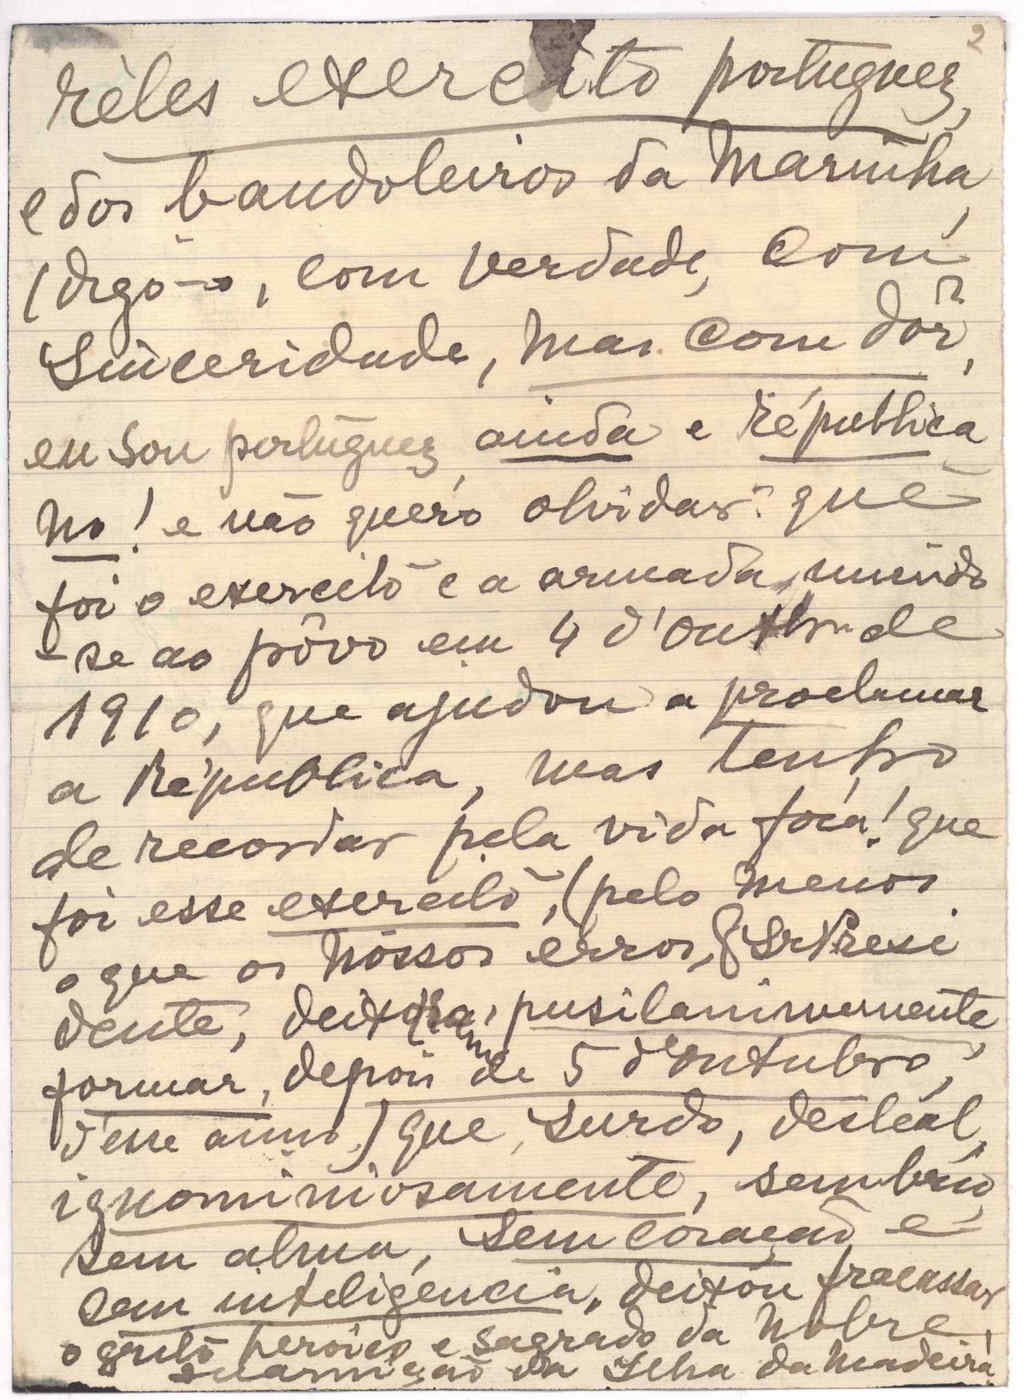 2
réles exercito portuguez,
e dos bandoleiros da Marinha,
(digo-o, com verdade, com
Sinceridade, mas com dôr,
eu sou portuguez ainda e républica
no! e não quero olvidar que
foi o exercito e a armada, unindo
-se ao pôvo em 4 d'Outbr. de
1910, que ajudou a proclamar
a Républica, mas tenho
de recordar pela vida fóra! que
foi esse exercito, (pelo menos
o que os nóssos erros, Sr Presi
dente, deixaram, pusilanimemente,
formar, depois de 5 d'Outubro,
d'esse anno,) que surdo, desleal,
ignominiosamente, sem brio,
sem alma, sem coração e
sem inteligencia, deixou fracassar
o grito heroico e sagrado da Nobre
Guarnição da Ilha da Madeira